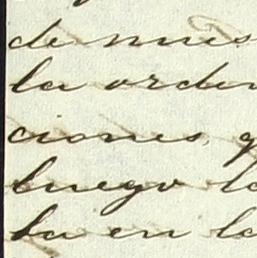 de nues
la orden
ciones, q
luego la
ba en la